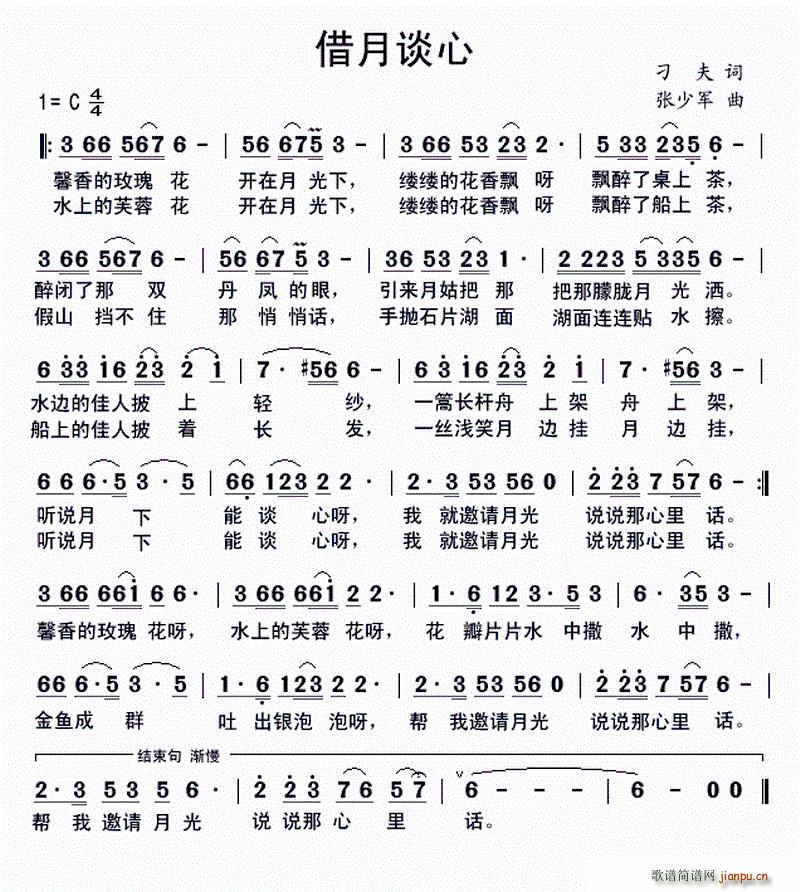 借月谈心
刁 夫 词
1= C 4/4
张少军 曲
‖: 3 66 567 6 - | 56 675 3 - | 3 66 53 23 2 · | 5 33 235 6 - |
馨香的玫瑰 花 开在月 光下, 缕缕的花香飘 呀 飘醉了桌上 茶,
水上的芙蓉 花 开在月 光下, 缕缕的花香飘 呀 飘醉了船上 茶,
3 66 567 6 - | 56 67 5 3 - | 36 53 23 1 · | 2 223 5 335 6 - |
醉闭了那 双 丹 凤 的 眼, 引来月姑把 那 把那朦胧月 光 洒。
假山 挡不 住 那 悄 悄话, 手抛石片湖 面 湖面连连贴 水 擦。
6 33 16 23 2 1 | 7 · #56 6 - | 63 16 23 2 1 | 7 · #56 6 - |
水边的佳人披 上 轻 纱, 一篙长杆舟 上 架 舟 上 架,
船上的佳人披 着 长 发, 一丝浅笑月 边 挂 月 边 挂,
6 6 6·5 3 · 5 | 66 123 2 2 · | 2 · 3 53 56 0 | 2 23 7 57 6 - :‖
听说月 下 能 谈 心呀, 我 就邀请月光 说说那心里 话。
听说月 下 能 谈 心呀, 我 就邀请月光 说说那心里 话。
3 66 661 6 6 · | 3 66 661 2 2 · | 1 · 6 12 3 · 5 3 | 6 · 35 3 - |
馨香的玫瑰 花呀, 水上的芙蓉 花呀, 花 瓣片片水 中撒 水 中 撒,
66 6·5 3 · 5 | 1 · 6 123 2 2 · | 2 · 3 53 56 0 | 2 23 7 57 6 - |
金鱼成 群 吐 出银泡 泡呀, 帮 我邀请月光 说说那心里 话。
结束句 渐慢
2 · 3 53 5 6 · | 2 2 3 76 57 | 6 - - - | 6 - 0 0 ‖
帮 我 邀请 月 光 说 说那 心 里 话。
歌谱简谱网
jianpu.cn